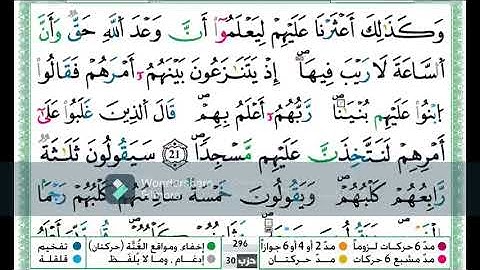 وَكَذَٰلِكَ أَعْثَرْنَا عَلَيْهِمْ لِيَعْلَمُوٓا۟ أَنَّ وَعْدَ ٱللَّهِ حَقٌّ وَأَنَّ
ٱلسَّاعَةَ لَا رَيْبَ فِيهَآ إِذْ يَتَنَٰزَعُونَ بَيْنَهُمُۥٓ أَمْرَهُمْ فَقَالُوا۟
ٱبْنُوا۟ عَلَيْهِم بُنْيَٰنًا رَّبُّهُمُۥٓ أَعْلَمُ بِهِمْ قَالَ ٱلَّذِينَ غَلَبُوا۟ عَلَىٰٓ
أَمْرِهِمْ لَنَتَّخِذَنَّ عَلَيْهِم مَّسْجِدًا 21 سَيَقُولُونَ ثَلَٰثَةٌ
رَّابِعُهُمْ كَلْبُهُمْ وَيَقُولُونَ خَمْسَةٌ سَادِسُهُمْ كَلْبُهُمْ رَجْمًۢا
Wondershare
مدّ 6 حركات لزوماً مدّ 2 أو 4 أو 6 جوازاً 296 إخفاء، ومواقع الغُنَّة (حركتان) تفخيم
مدّ مشبع 6 حركات مدّ حركتان حزب 30 إدغام، وما لا يُلفَظ قلقلة